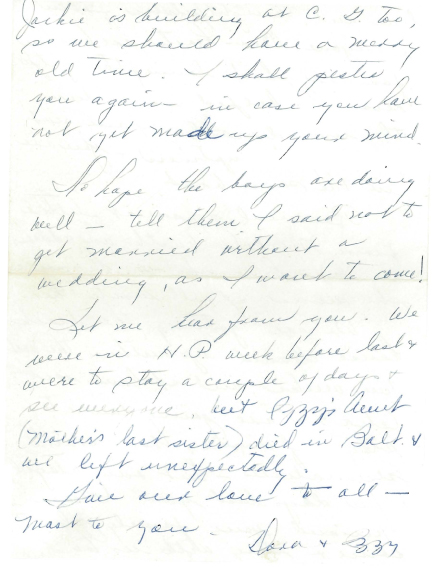 Jackie is building at C. G. too,
so we should have a merry
old time. I shall pester
you again — in case you have
not yet made up your mind.
So hope the boys are doing
well — tell them I said not to
get married without a
wedding, as I want to come!
Let me hear from you. We
were in N.P. week before last &
were to stay a couple of days &
see everyone, but Izzy's Aunt
(Mother's last sister) died in Balt. &
we left unexpectedly.
Give our love to all —
Most to you —
Dora & Izzy